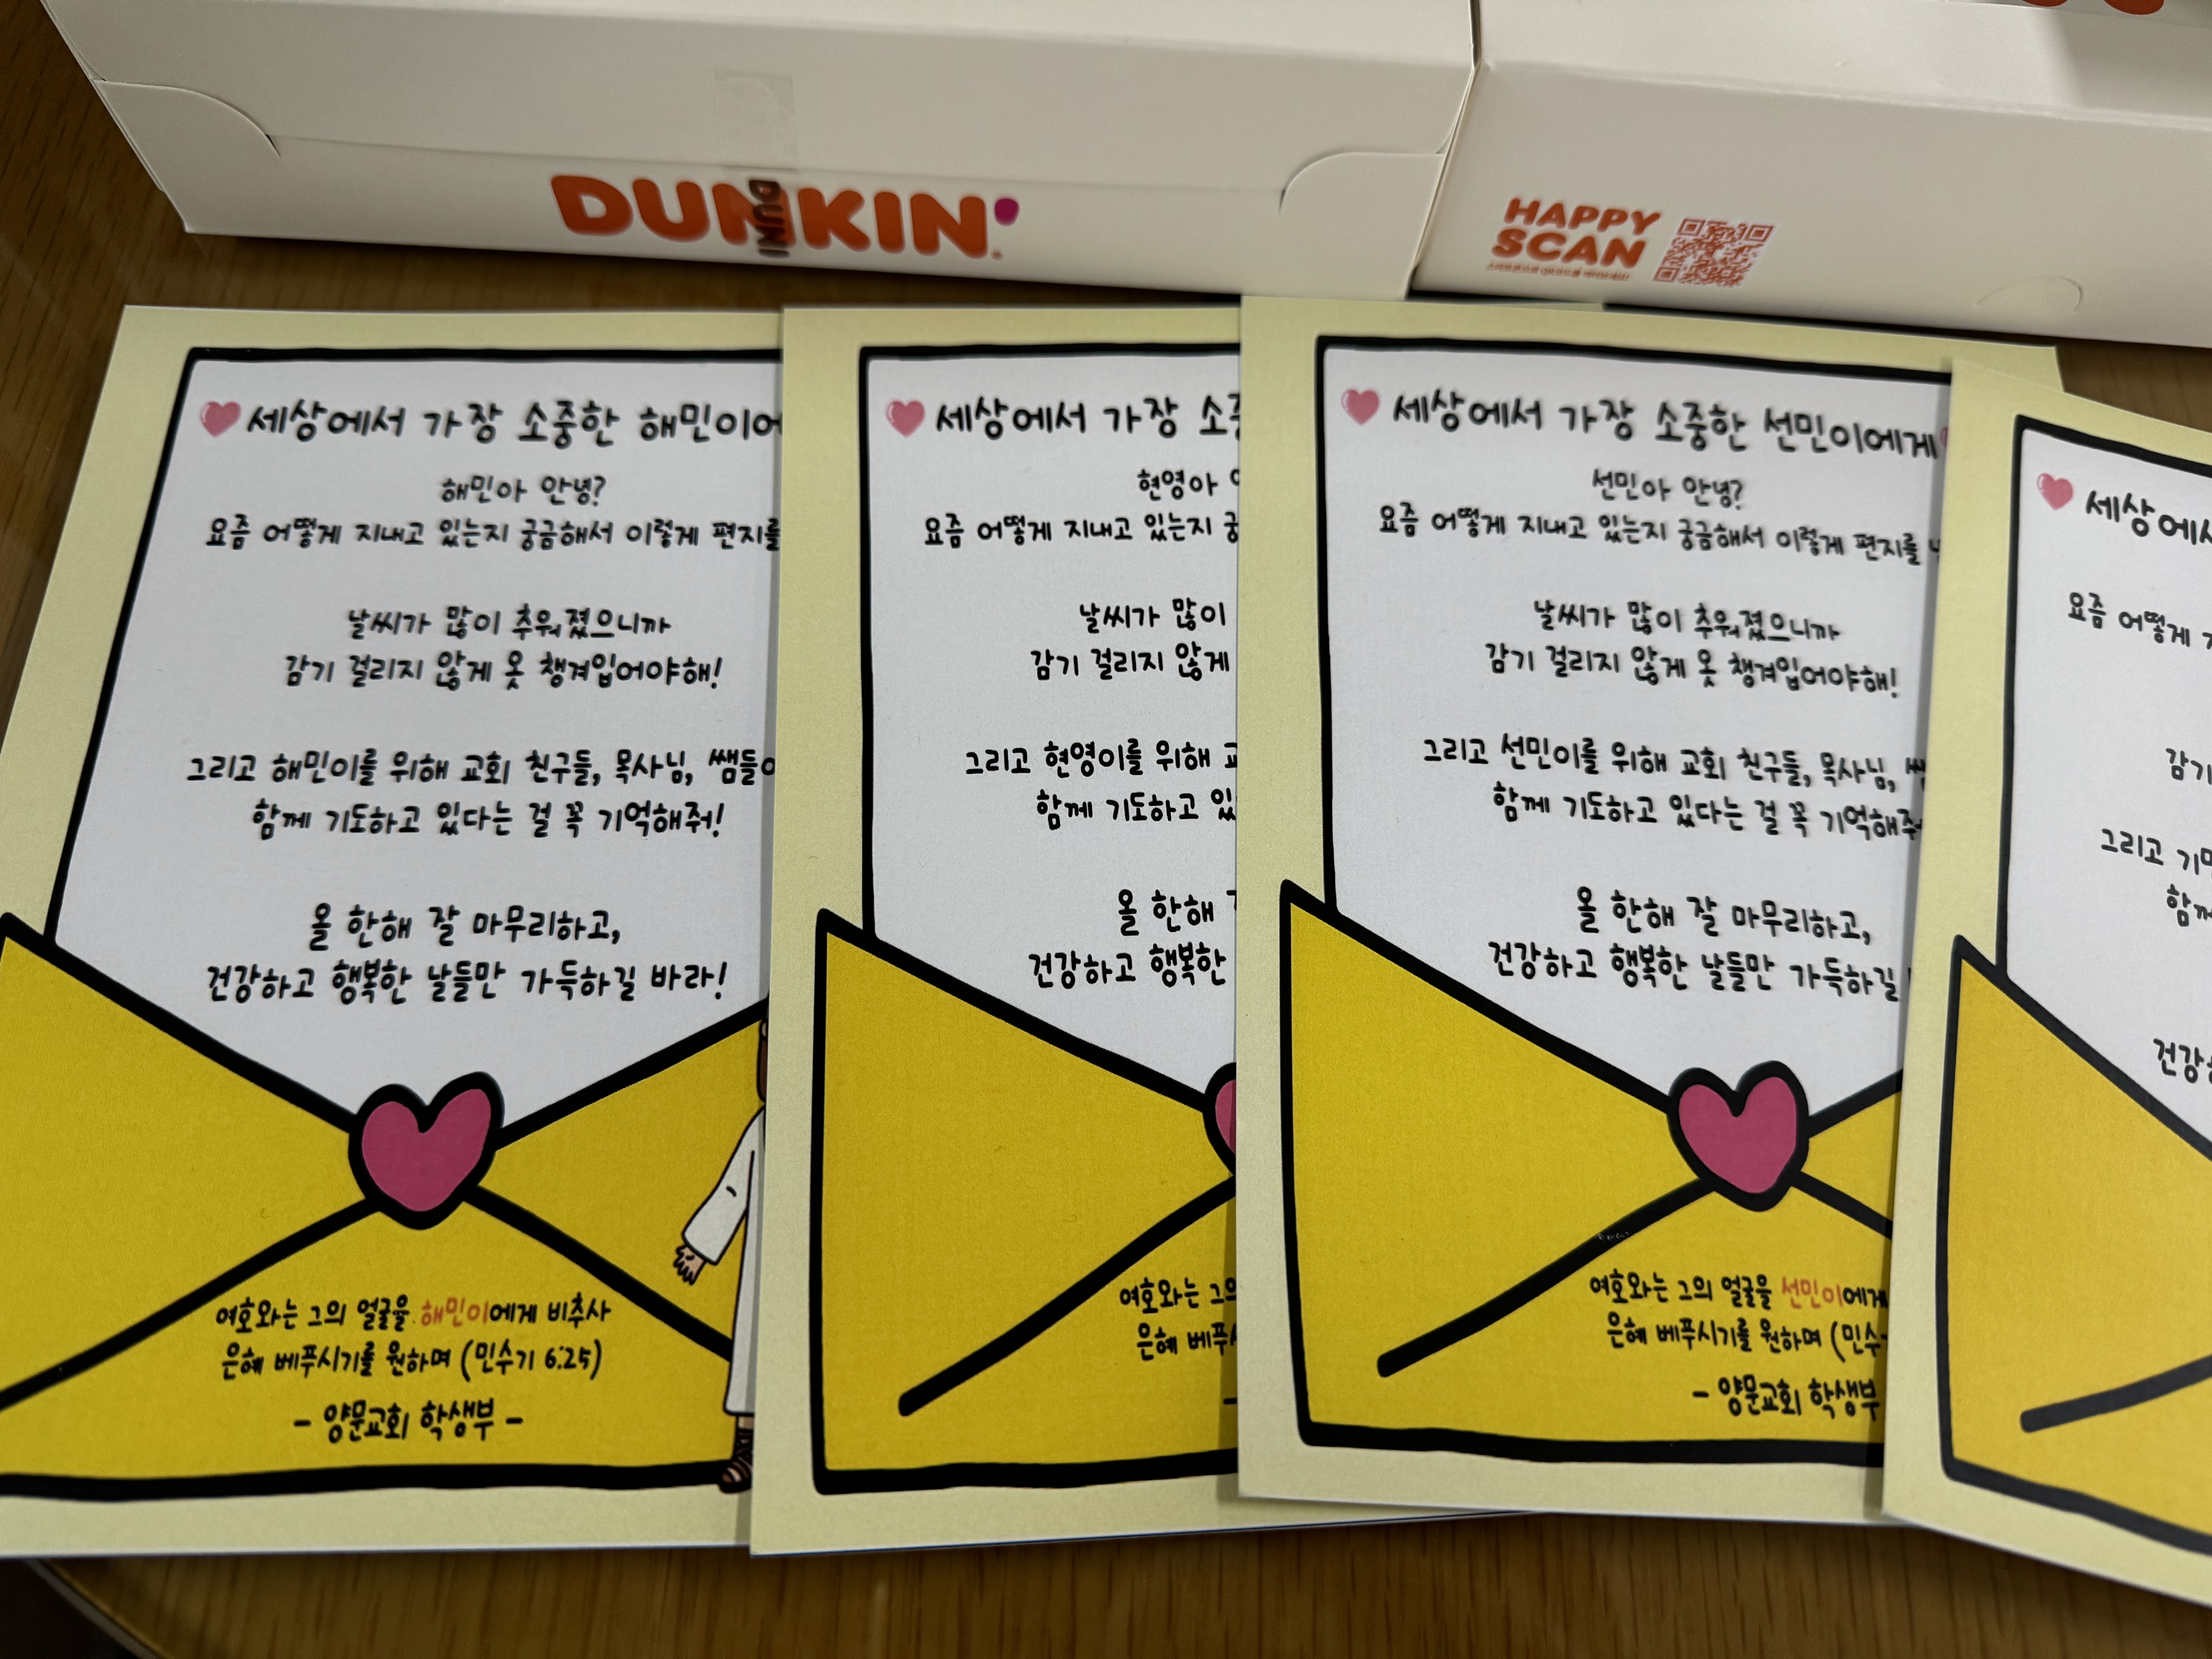 DUNKIN'
DUNKI
HAPPY
SCAN
세상에서 가장 소중한 해민이에
해민아 안녕?
요즘 어떻게 지내고 있는지 궁금해서 이렇게 편지를
날씨가 많이 추워졌으니까
감기 걸리지 않게 옷 챙겨입어야해!
그리고 해민이를 위해 교회 친구들, 목사님, 쌤들이
함께 기도하고 있다는 걸 꼭 기억해줘!
올 한해 잘 마무리하고,
건강하고 행복한 날들만 가득하길 바라!
여호와는 그의 얼굴을 해민이에게 비추사
은혜 베푸시기를 원하며 (민수기 6:25)
- 양문교회 학생부 -
세상에서 가장
현영아
요즘 어떻게 지내고 있는지
날씨가 많이
감기 걸리지 않게
그리고 현영이를 위해
함께 기도하고
올 한해
건강하고 행복한
여호와는
은혜
세상에서 가장 소중한 선민이에게
선민아 안녕?
요즘 어떻게 지내고 있는지 궁금해서 이렇게 편지를
날씨가 많이 추워졌으니까
감기 걸리지 않게 옷 챙겨입어야해!
그리고 선민이를 위해 교회 친구들, 목사님,
함께 기도하고 있다는 걸 꼭 기억해줘
올 한해 잘 마무리하고,
건강하고 행복한 날들만 가득하길
여호와는 그의 얼굴을 선민이에게
은혜 베푸시기를 원하며 (민수
- 양문교회 학생부
세상에서
요즘 어떻게
감기
그리고
함께